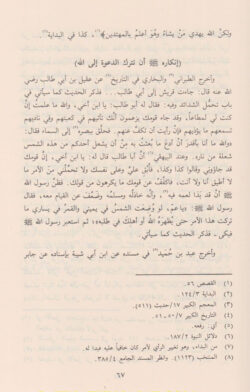 ولكنَّ الله يهدي مَنْ يشاءُ وهو أعلمُ بالمهتدين﴾(١). كذا في البداية(٢).
(إنكاره ﷺ أن تترك الدعوة إلى الله)
وأخرج الطبراني(٣) والبخاري في التاريخ(٤) عن عقيل بن أبي طالب رضي
الله عنه قال: جاءت قريش إلى أبي طالب... فذكر الحديث كما سيأتي في
باب تحمُّل الشدائد وفيه: فقال له أبو طالب: يا ابن أخي، والله ما علمتُ إنْ
كنت لي لمطاعاً، وقد جاء قومك يزعمون أنك تأتيهم في كعبتهم وفي ناديهم
تُسمعهم ما يؤذيهم، فإن رأيت أن تكفَّ عنهم. فحلَّق ببصره(٥) إلى السماء فقال:
والله ما أنا بأقدر أن أدع ما بُعثت به من أن يُشعل أحدكم من هذه الشمس
شعلة من نار». وعند البيهقي(٦) أن أبا طالب قال له ﷺ: يا ابن أخي، إنَّ قومك
قد جاؤوني وقالوا كذا وكذا، فأبْقِ عليَّ وعلى نفسك ولا تحمِّلني من الأمر
ما لا أُطيق أنا ولا أنت، فاكْفُف عن قومك ما يكرهون من قولك. فظنَّ رسول الله
ﷺ أنْ قد بدا لعمه فيه(٧)، وأنَّه خاذلُه ومسلِّمُه وضَعُف عن القيام معه، فقال
رسول الله ﷺ: «يا عم، لو وُضعتِ الشمسُ في يميني والقمرُ في يساري ما
تركت هذا الأمر حتى يُظْهِرَهُ الله أو أهلكَ في طلبه»؛ ثم استعبر رسول الله ﷺ
فبكى. فذكر الحديث كما سيأتي.
وأخرج عبد بن حُميد(٨) في مسنده عن ابن أبي شيبة بإسناده عن جابر
(١) القصص ٥٦.
(٢) البداية ١٢٤/٣.
(٣) المعجم الكبير ١٧/حديث (٥١١).
(٤) التاريخ ٥٠/٧-٥١.
(٥) أي: رفعه.
(٦) دلائل النبوة ١٨٧/٢.
(٧) من البداء، وهو تغيير الرأي لأمر كان خافياً عليه فبدا له.
(٨) المنتخب (١١٢٣). وانظر المسند الجامع ٣٨٥/٤.
٦٧